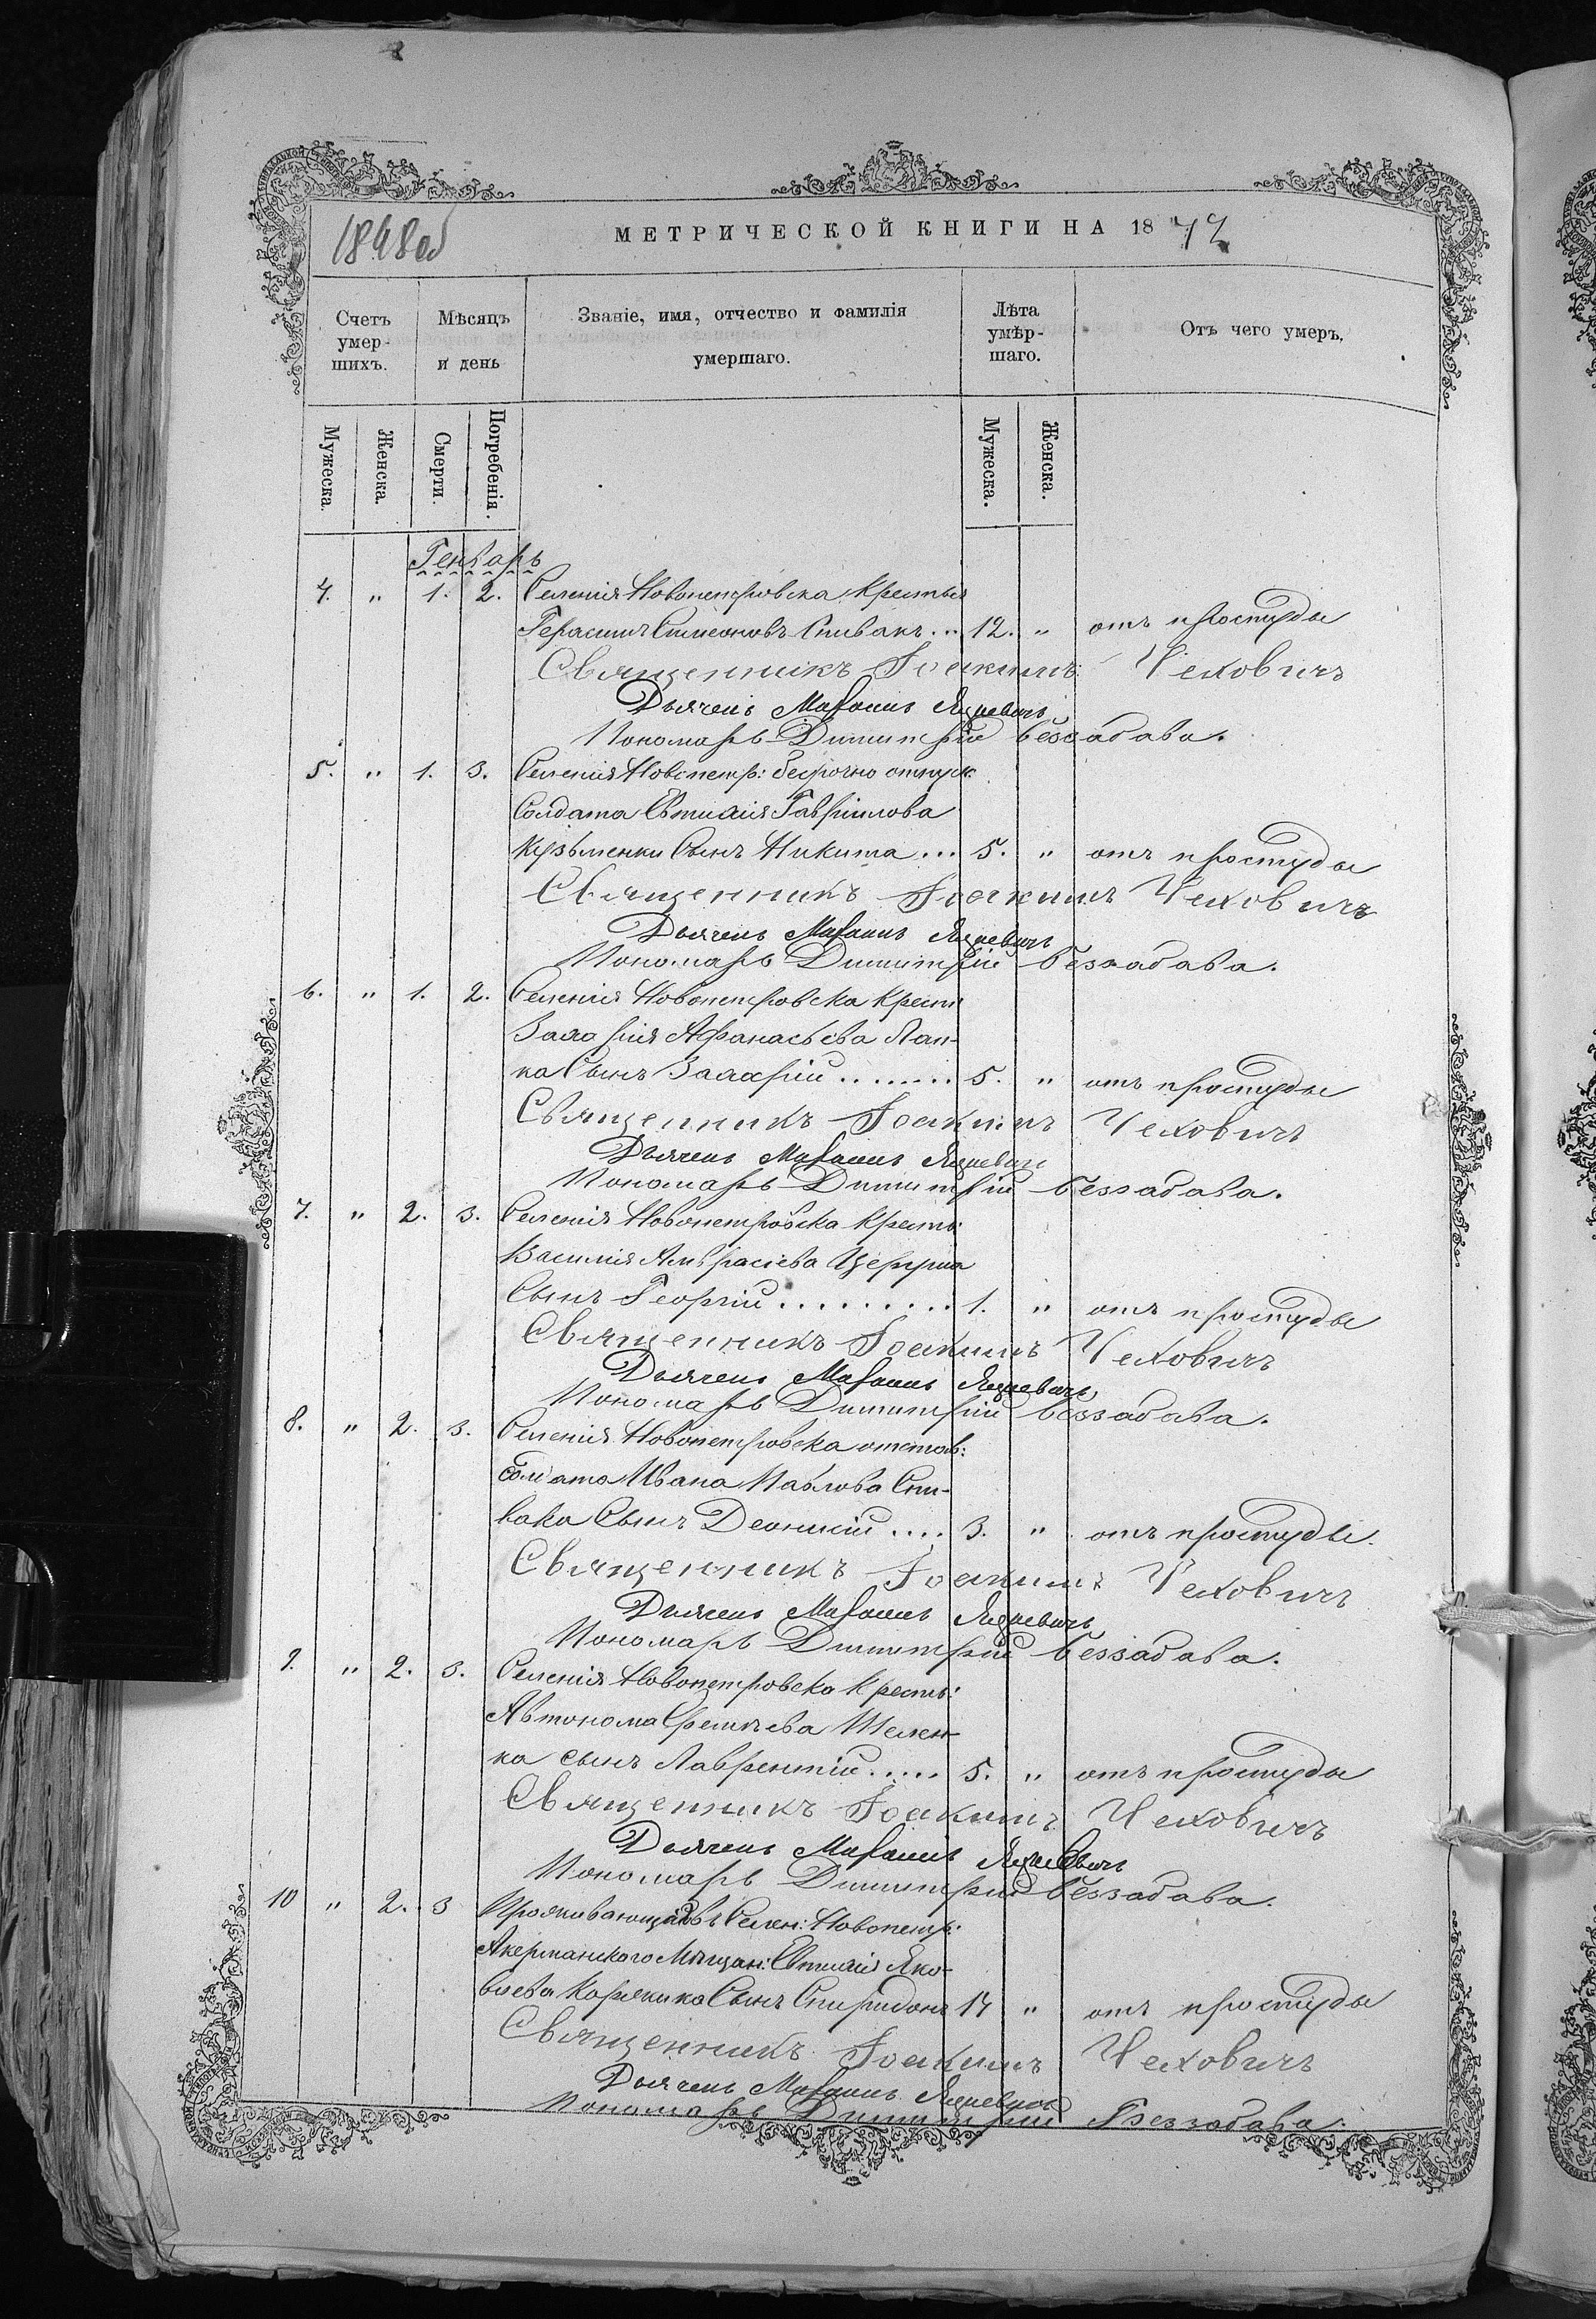 1848 об
МЕТРИЧЕСКОЙ КНИГИ НА 1872
Счетъ умер-шихъ.
Мѣсяцъ и день
Званіе, имя, отчество и фамилія умершаго.
Лѣта умѣр-шаго.
Отъ чего умеръ.
Мужеска.
Женска.
Смерти.
Погребенія.
Мужеска.
Женска.
Генварь
4. " 1. 2. Селенія Новопетровска Крестья
Герасимъ Симеоновъ Спивакъ .. 12. " отъ простуды
Священникъ Іоакимъ Чеховичъ
Дьячекъ
Пономарь Димитрій Беззабава.
5. " 1. 3. Селенія Новопетр: безсрочно отпуск.
Солдата Евтихія Гавріилова
Кузьменки Сынъ Никита ... 5. " отъ простуды
Священникъ Іоакимъ Чеховичъ
Дьячекъ
Пономарь Димитрій Беззабава.
6. " 1. 2. Селенія Новопетровска Крест
Захарія Афанасьева Лап-
ка Сынъ Захарій ........ 5. " отъ простуды
Священникъ Іоакимъ Чеховичъ
Дьячекъ
Пономарь Димитрій Беззабава.
7. " 2. 3. Селенія Новопетровска Кресть:
Василія Амвросіева
Сынъ Георгій ......... 1. " отъ простуды
Священникъ Іоакимъ Чеховичъ
Дьячекъ
Пономарь Димитрій Беззабава.
8. " 2. 3. Селенія Новопетровска отстав:
Солдата Ивана Павлова Спи-
вака Сынъ .... 3. " отъ простуды.
Священникъ Іоакимъ Чеховичъ
Дьячекъ
Пономарь Димитрій Беззабава.
9. " 2. 3. Селенія Новопетровска Кресть:
Автонома
ка сынъ Лаврентій ..... 5. " отъ простуды
Священникъ Іоакимъ Чеховичъ
Дьячекъ
Пономарь Димитрій Беззабава.
10 " 2. 3 Проживающаго въ Селен: Новопетр:
Акерманского Мѣщан: Евтихія Яко-
влева Сынъ Спиридонъ 14 " отъ простуды
Священникъ Іоакимъ Чеховичъ
Дьячекъ
Пономарь Димитрій Беззабава.